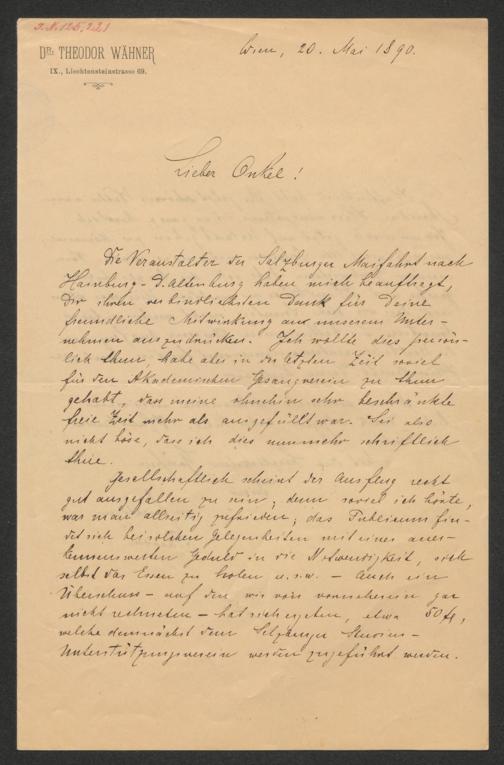 J.N. 125.221
DR. THEODOR WÄHNER
IX., Liechtensteinstrasse 69.
Wien, 20. Mai 1890.
Lieber Onkel!
Die Veranstalter der Salzburger Maifahrt nach
Hainburg-D. Altenburg haben mich beauftragt,
Dir ihren verbindlichsten Dank für Deine
freundliche Mitwirkung an unserem Unter-
nehmen auszudrücken. Ich wollte dies persön-
lich thun, habe aber in der letzten Zeit soviel
für den Akademischen Gesangverein zu thun
gehabt, dass meine ohnehin sehr beschränkte
freie Zeit mehr als ausgefüllt war. Sei also
nicht böse, dass ich dies nunmehr schriftlich
thue.
Gesellschaftlich scheint der Ausflug recht
gut ausgefallen zu sein; denn soviel ich hörte,
war man allseitig zufrieden; das Publicum fin-
det sich bei solchen Gelegenheiten mit einer aner-
kennenswerten Geduld in die Notwendigkeit, sich
selbst das Essen zu holen u.s.w. — Auch ein
Überschuss — auf den wir von vornherein gar
nicht rechneten — hat sich ergeben, etwa 50 fl,
welche demnächst dem Salzburger
Unterstützungsverein werden zugeführt werden.